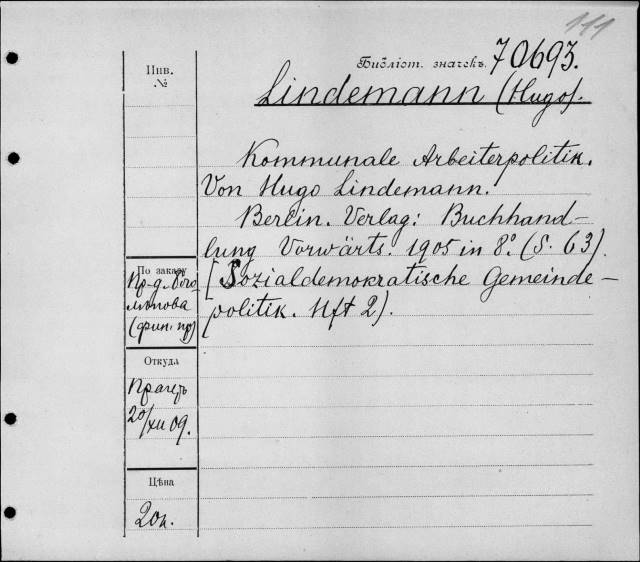 111
Библіот. значекъ 70693.
Инв.
№
Lindemann (Hugo).
Kommunale Arbeiterpolitik.
Von Hugo Lindemann.
Berlin. Verlag: Buchhand-
lung Vorwärts. 1905 in 8º. (S. 63).
[Sozialdemokratische Gemeinde-
politik. Hft 2).
По заказу
Пр-д. Бого
лѣпова
(фин. пр)
Откуда
Прагеръ
20/XII 09.
Цѣна
20к.